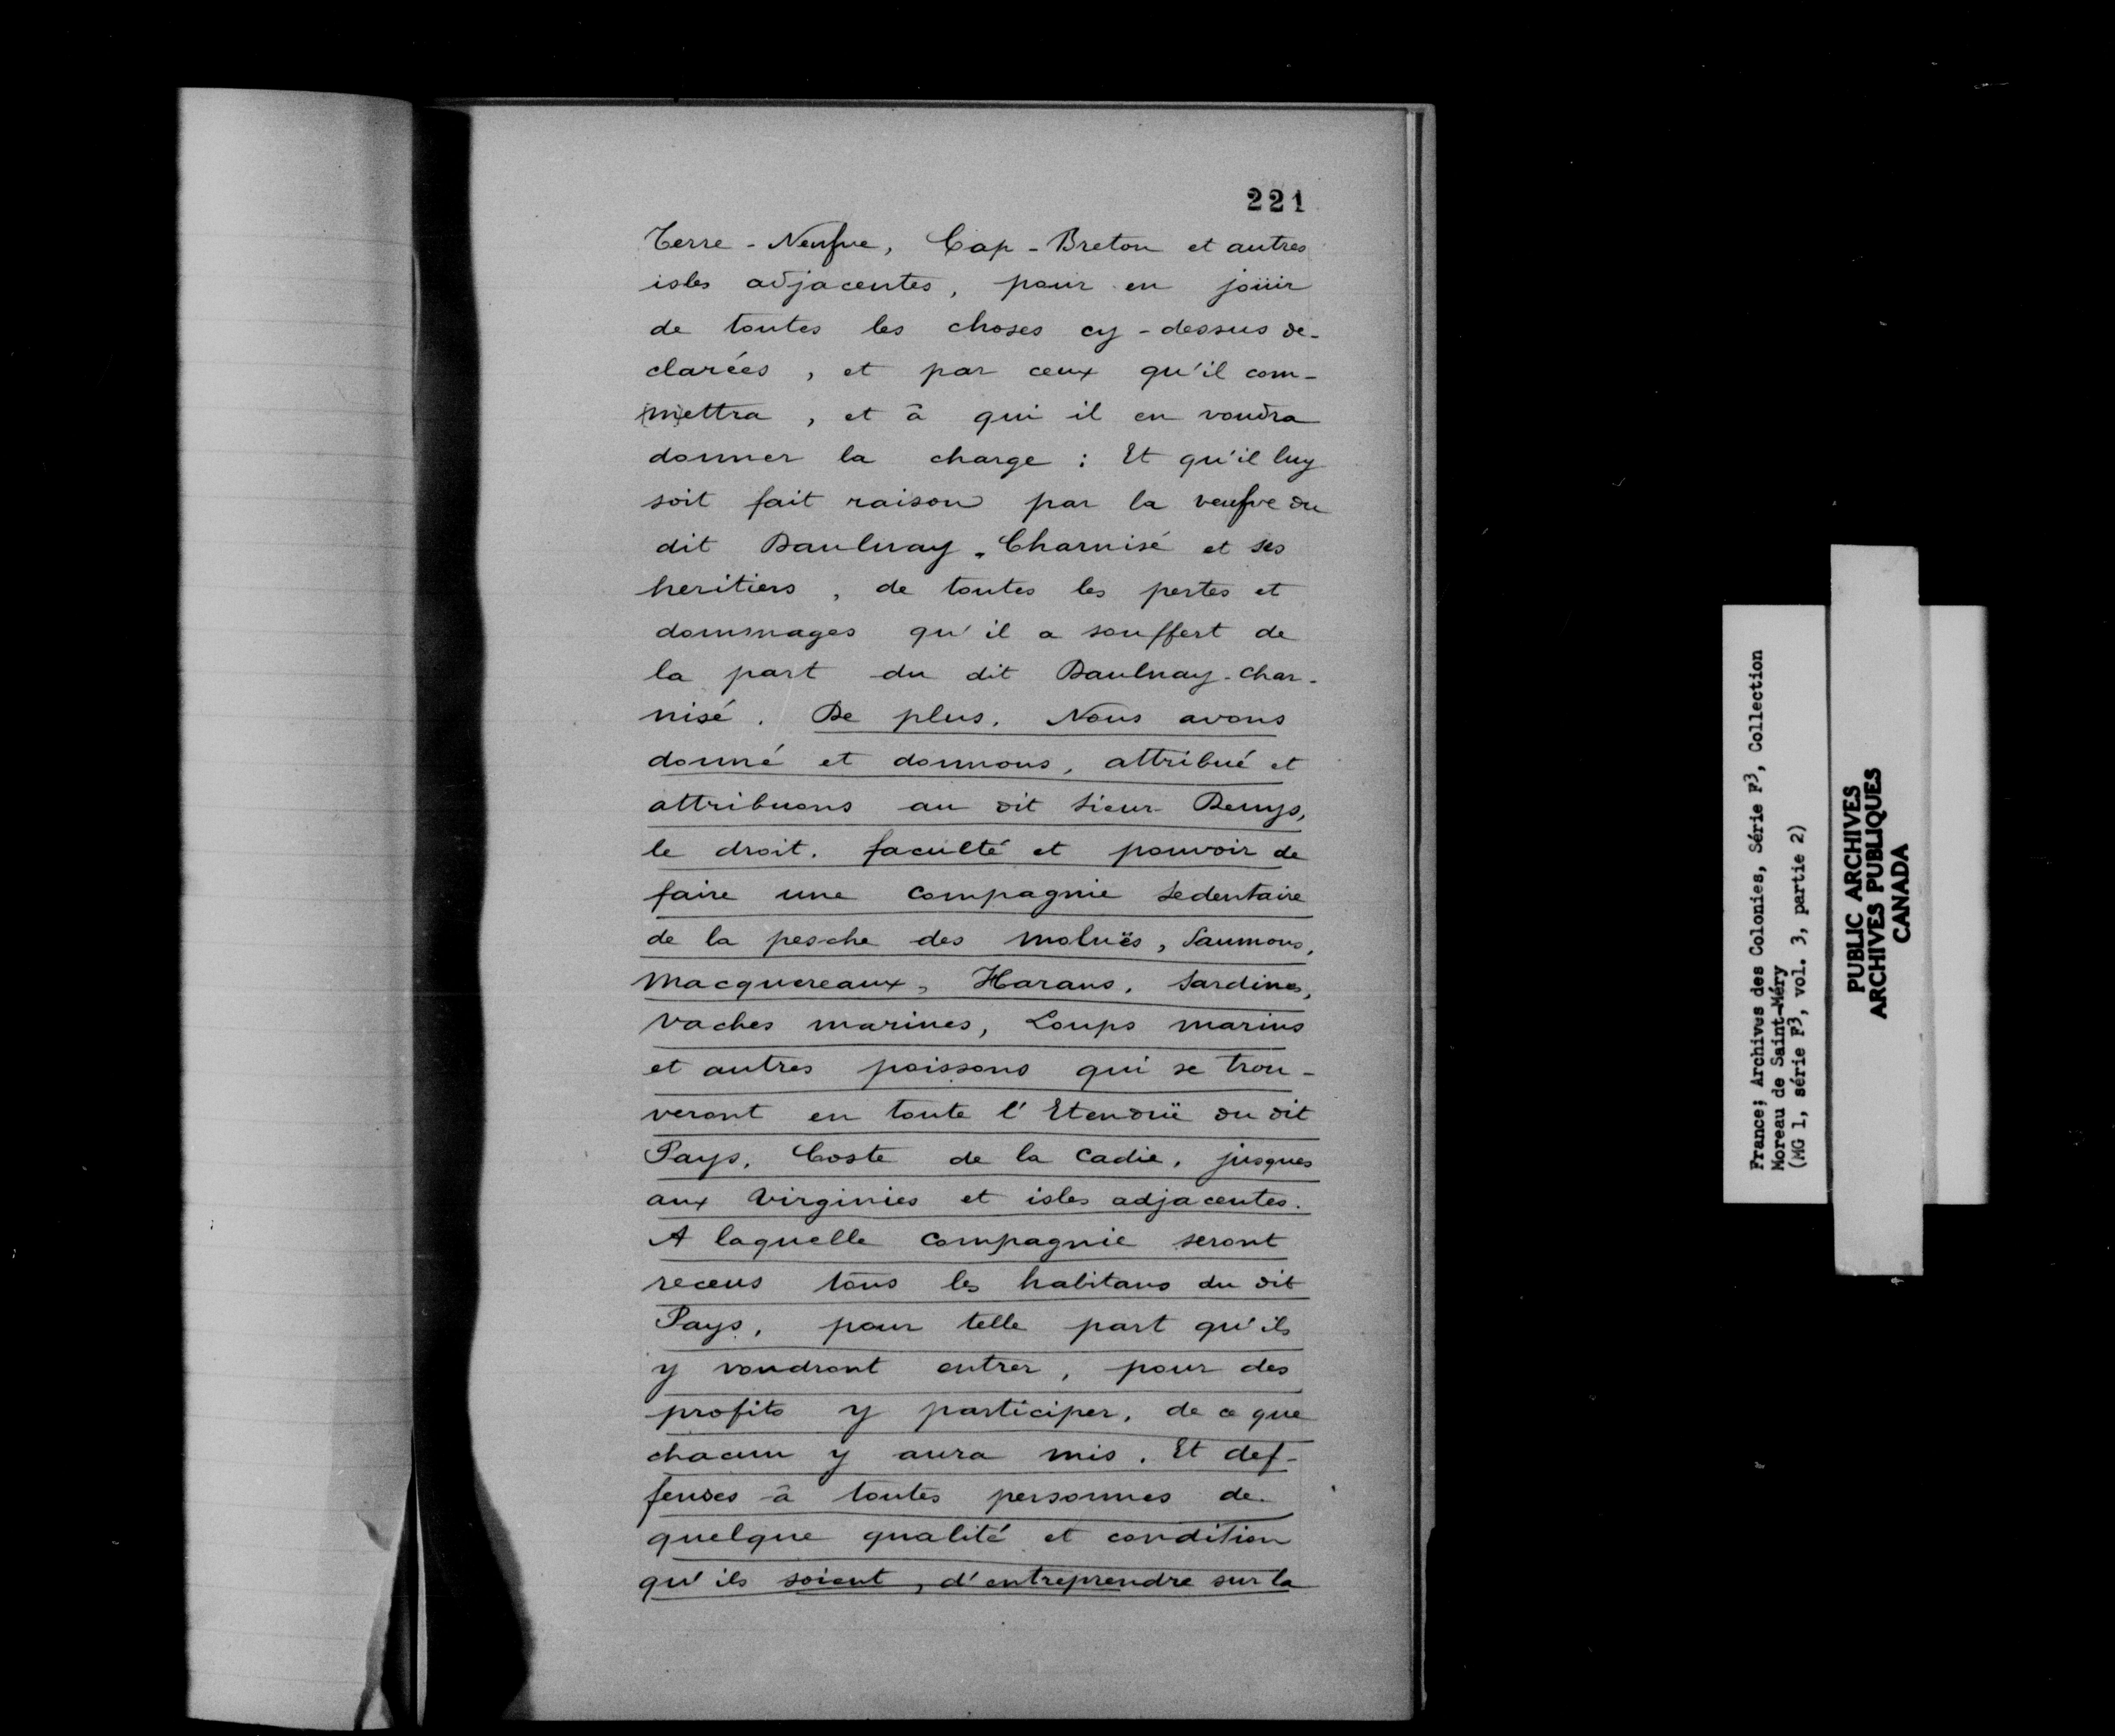 221
Terre-Neufve, Cap-Breton et autres
isles adjacentes, pour en joüir
de toutes les choses cy-dessus de-
clarées, et par ceux qu'il com-
mettra, et à qui il en voudra
donner la charge : Et qu'il luy
soit fait raison par la veufve du
dit Daulnay-Charnisé et ses
heritiers, de toutes les pertes et
dommages qu'il a souffert de
la part du dit Daulnay-Char-
nisé. De plus, Nous avons
donné et donnons, attribué et
attribuons au dit Sieur Denys,
le droit, faculté et pouvoir de
faire une compagnie sedentaire
de la pesche des moluës, Saumons,
Macquereaux, Harans, Sardines,
Vaches marines, Loups marins
et autres poissons qui se trou-
veront en toute l'Etenduë du dit
Pays, Coste de la Cadie, jusques
aux Virginies et isles adjacentes.
A laquelle compagnie seront
receus tous les habitans du dit
Pays, pour telle part qu'ils
y voudront entrer, pour des
profits y participer, de ce que
chacun y aura mis. Et def-
fenses à toutes personnes de
quelque qualité et condition
qu'ils soient, d'entreprendre sur la
France; Archives des Colonies, Série F3, Collection
Moreau de Saint-Méry
(MG 1, série F3, vol. 3, partie 2)
PUBLIC ARCHIVES
ARCHIVES PUBLIQUES
CANADA